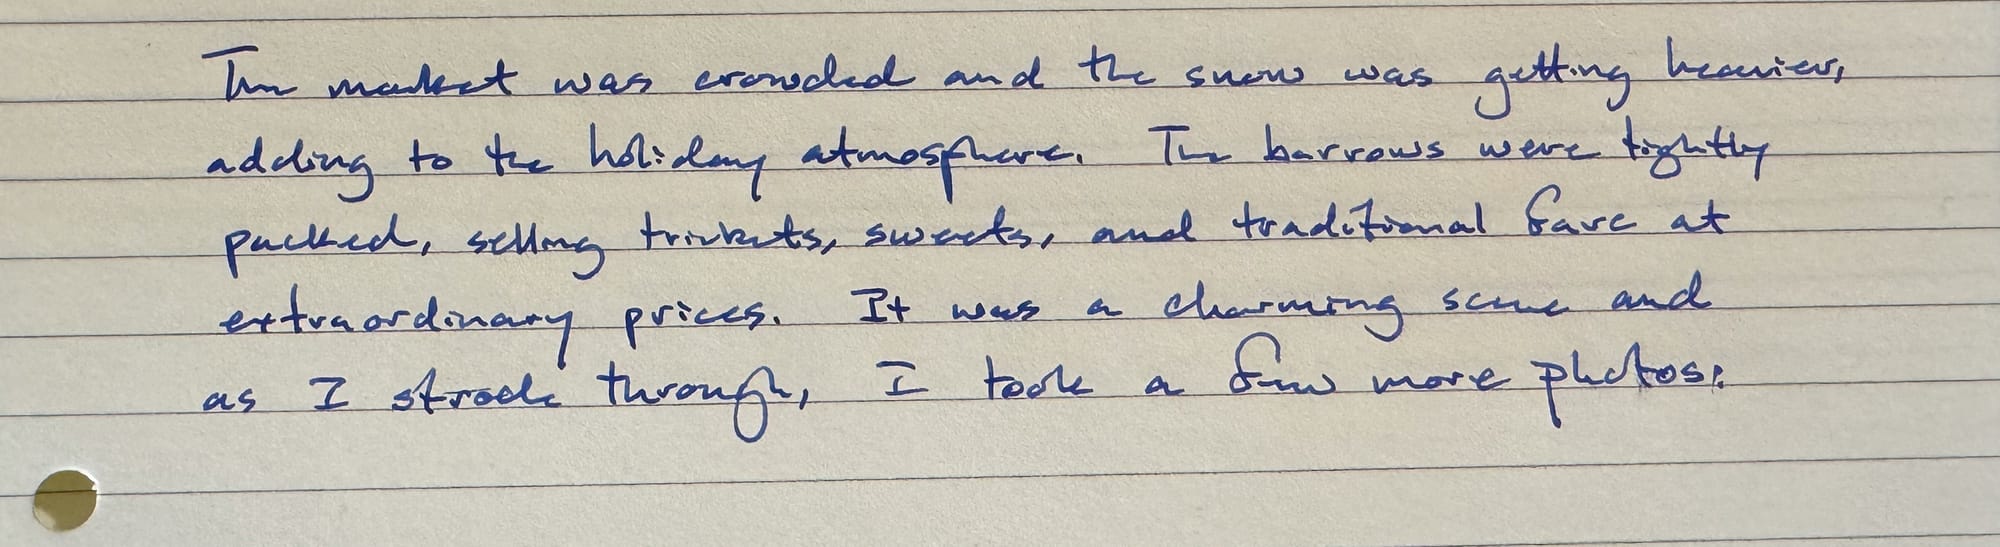 The market was crowded and the snow was getting heavier,
adding to the holiday atmosphere. The barrows were tightly
packed, selling trinkets, sweets, and traditional fare at
extraordinary prices. It was a charming scene and
as I strode through, I took a few more photos.